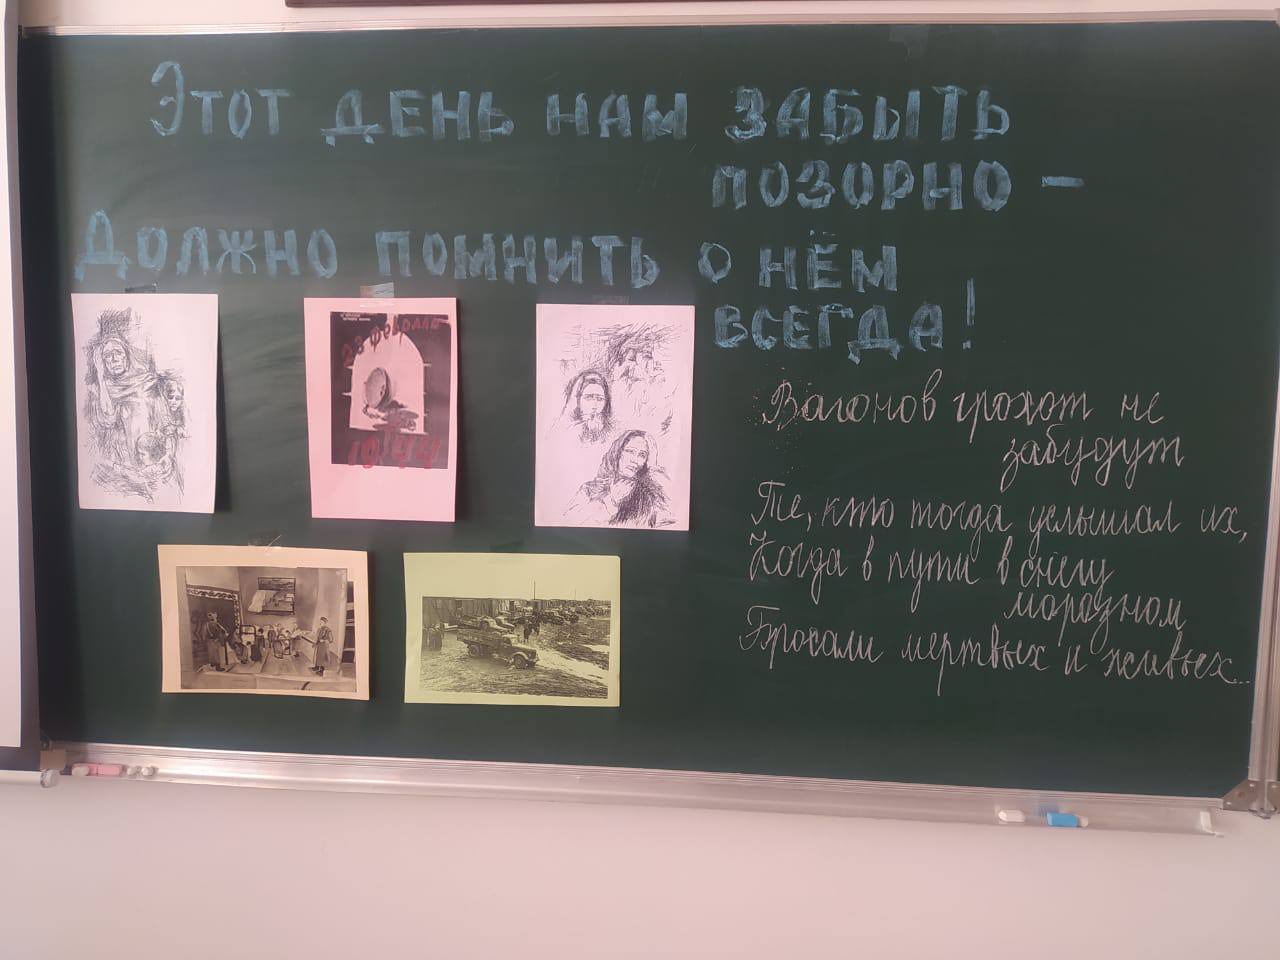 Этот день нам забыть
позорно -
Должно помнить о нём
всегда!
23 февраля
1944
Вагонов грохот не
забудут
Те, кто тогда услышал их,
Когда в пути в снегу
морозном
Бросали мертвых и живых..